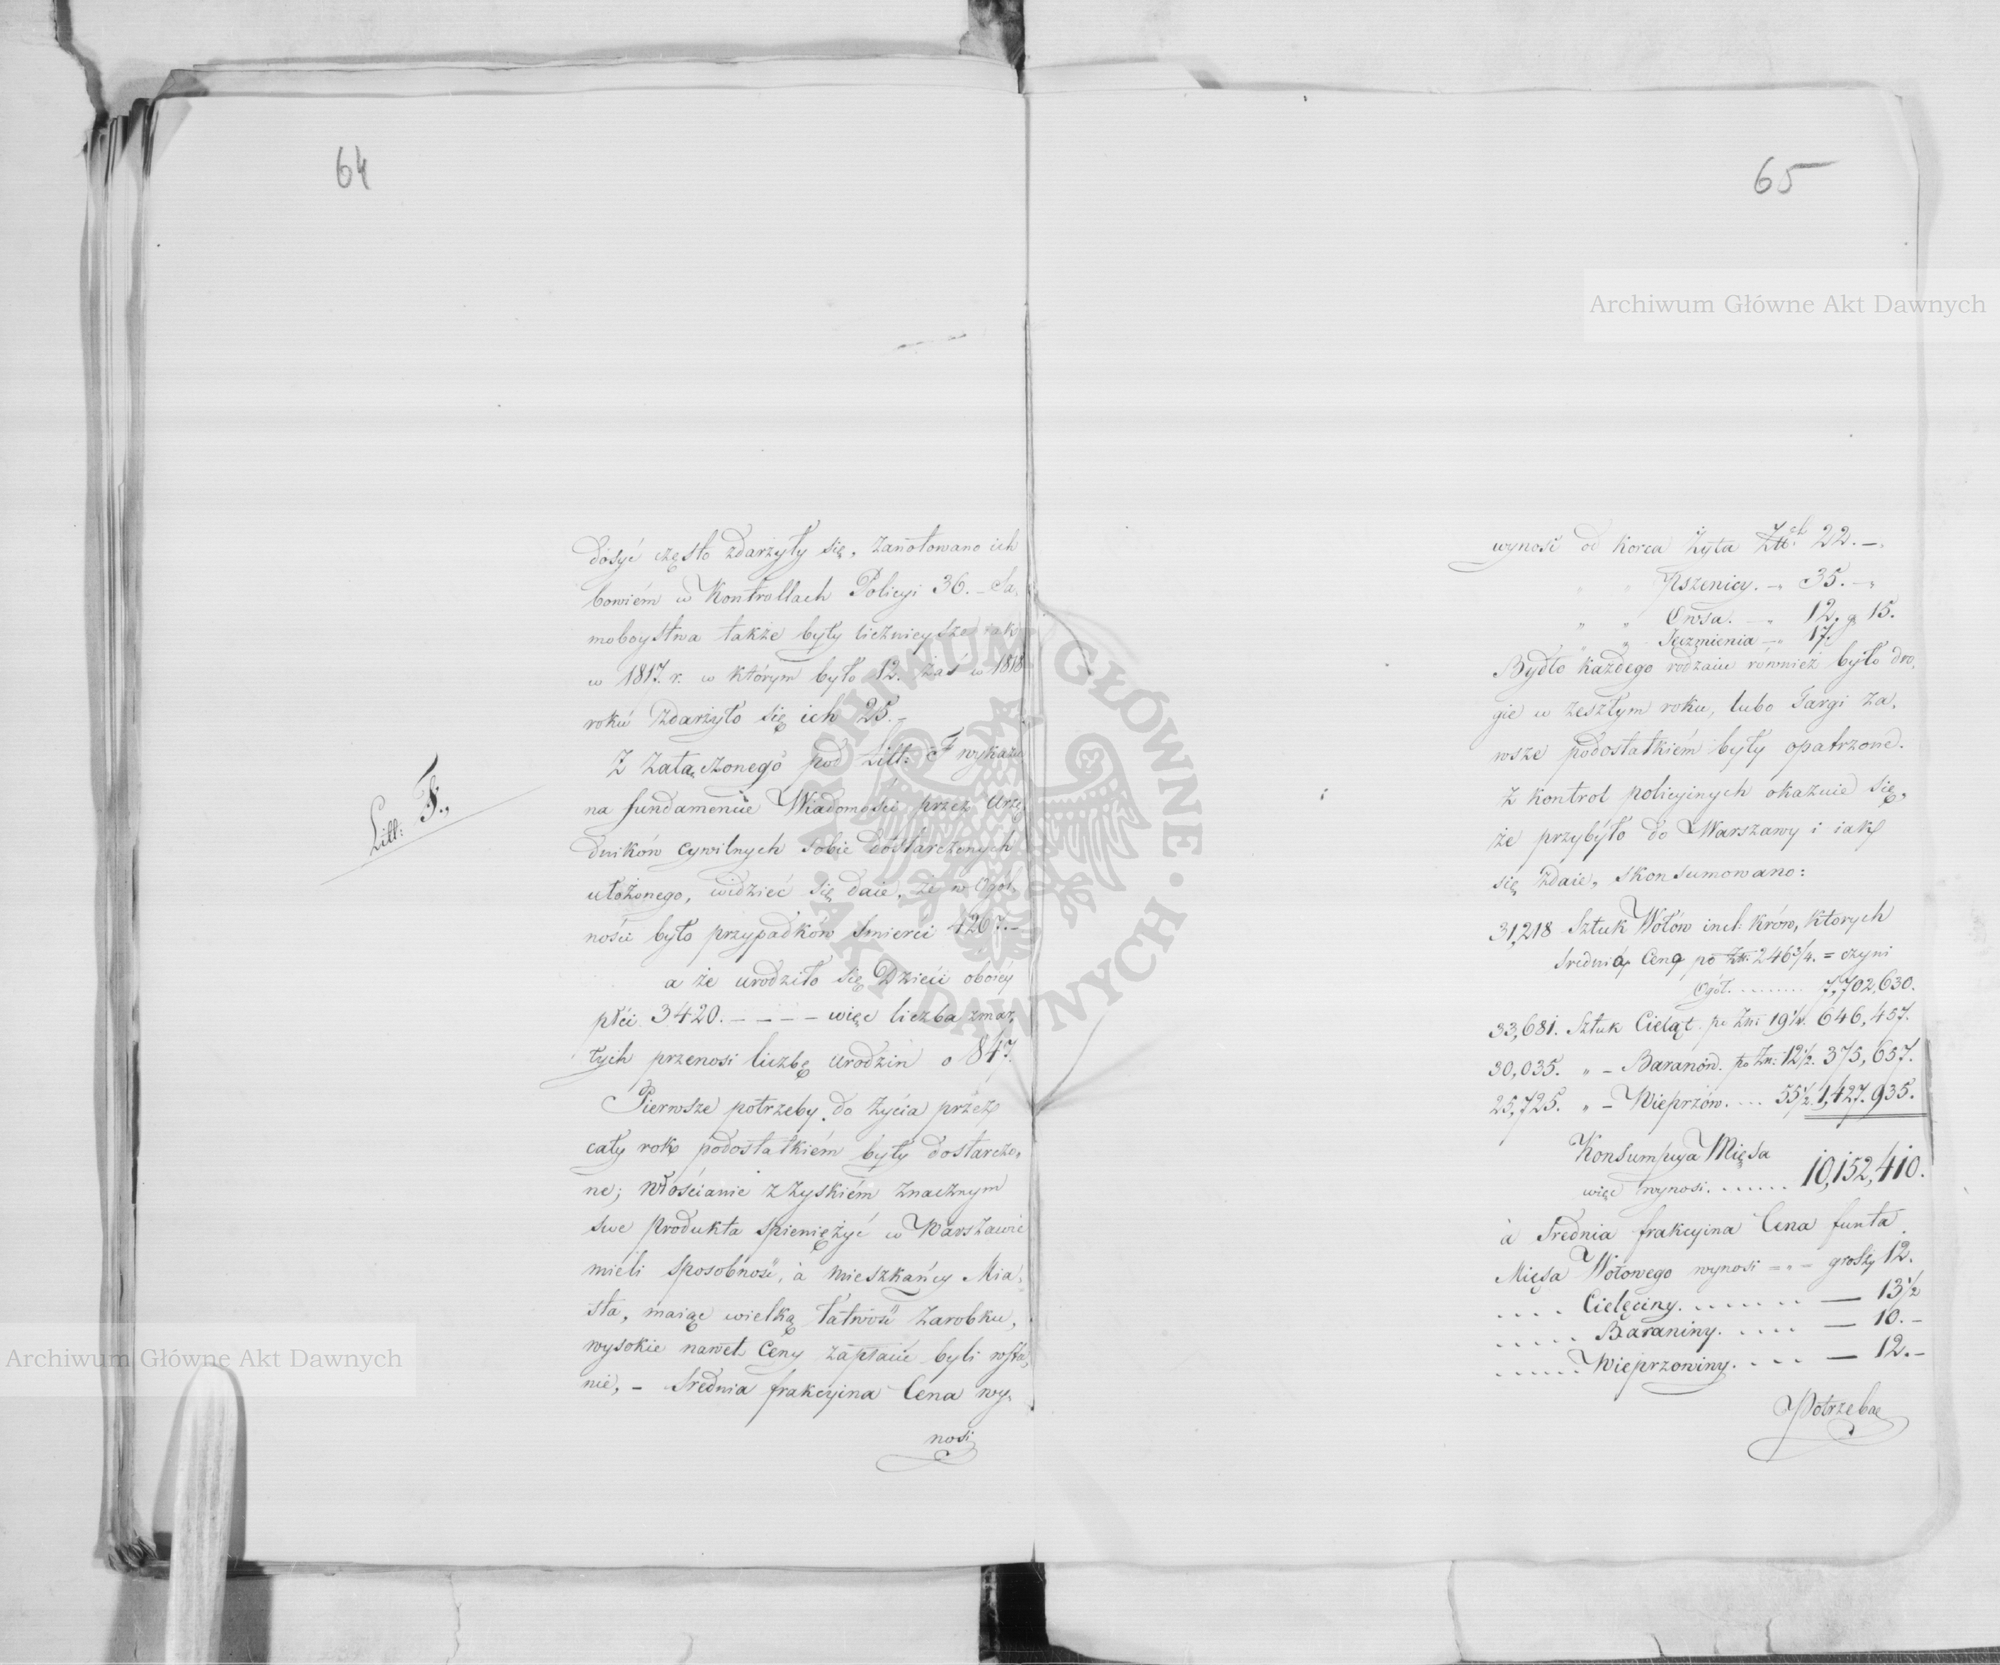 64
dosyć często zdarzyły się, zanotowano ich
bowiém w Kontrollach Policyi 36. – Sa,
moboystwa także były licznieysze iak
w 1817. r. w którym było 12. zaś w 1818
roku zdarzyło się ich 25. –
Z załączonego pod Litt: F wykazu
Litt: F.,
na fundamencie Wiadomości przez Urzę
dników cywilnych sobie dostarczonych
ułożonego, widzieć się daie, że w Ogól,
ności było przypadków śmierci 4267. –
a że urodziło się Dzieci oboiéy
płci 3420. – – – – więc liczba zmar,
łych przenosi liczbę urodzin o 847.
Pierwsze potrzeby do życia przez
cały rok podostatkiém były dostarczo,
ne; włościanie z zyskiém znacznym
swe produkta spieniężyć w Warszawie
mieli sposobność, à mieszkańcy Mia,
sta, maiąc wielką łatwość zarobku,
wysokie nawet Ceny zapłacić byli wsta,
nie, – Srednia frakcyina Cena wy,
nosi
65
wynosi od korca Żyta Złt. 22. –
" " Pszenicy. – " 35. – "
" " Owsa. – " 12. g 15.
" " Jęczmienia – " 17.
Bydło każdego rodzaiu również było dro,
gie w zeszłym roku, lubo Targi za,
wsze podostatkiém były opatrzone.
Z kontrol policyinych okazuie się,
że przybyło do Warszawy i iak
się zdaie, skonsumowano:
31,218 Sztuk Wołów incl: krów, których
srednią Ceną po Złt: 246 3/4. = czyni
Ogół. . . . . . . . 7,702,630.
33,681. Sztuk Cieląt. po Złt: 19 1/4. 646,457.
30,035. " – Baranów. po Złt: 12 1/2. 375,657.
25,725. " – Wieprzów. . . . 55 1/2. 1,427,935.
Konsumpcya Mięsa
więc wynosi. . . . . . . 10,152,410.
à Srednia frakcyina Cena funta
Mięsa Wołowego wynosi = " = groszy 12.
. . . . Cielęciny. . . . . . . . — 13 1/2
. . . . . Baraniny. . . . . — 10. –
. . . . . . Wieprzowiny. . . . . — 12. –
Potrzeba
Archiwum Główne Akt Dawnych
Archiwum Główne Akt Dawnych
ARCHIWUM GŁÓWNE · AKT DAWNYCH ·